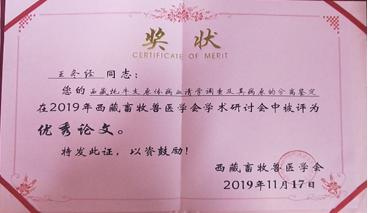 奖状
CERTIFICATE OF MERIT
王冬经 同志:
您的西藏牦牛支原体病血清学调查及其病原的分离鉴定
在2019年西藏畜牧兽医学会学术研讨会中被评为
优秀论文。
特发此证,以资鼓励!
西藏畜牧兽医学会
2019年11月17日